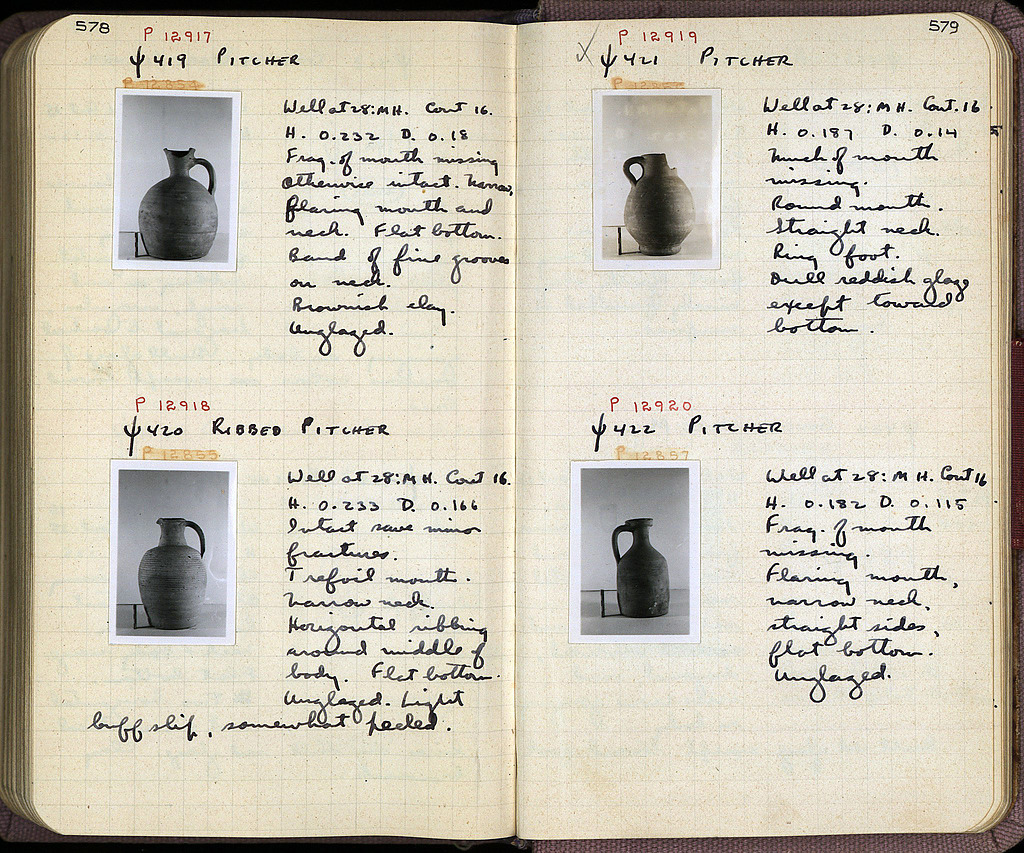 578
P 12917
ψ 419 PITCHER
P 12854
Well at 28:MH. Cont 16.
H. 0.232 D. 0.18
Frag. of mouth missing
otherwise intact. Narrow,
flaring mouth and
neck. Flat bottom.
Band of fine grooves
on neck.
Brownish clay.
Unglazed.
P 12918
ψ 420 RIBBED PITCHER
P 12855
Well at 28:MH. Cont 16.
H. 0.233 D. 0.166
Intact save minor
fractures.
Trefoil mouth.
Narrow neck.
Horizontal ribbing
around middle of
body. Flat bottom.
Unglazed. Light
buff slip, somewhat peeled.
579
P 12919
ψ 421 PITCHER
Well at 28:MH. Cont. 16
H. 0.187 D. 0.14
Much of mouth
missing.
Round mouth.
Straight neck.
Ring foot.
Dull reddish glaze
except toward
bottom.
P 12920
ψ 422 PITCHER
P 12857
Well at 28:MH. Cont 16
H. 0.182 D. 0.115
Frag. of mouth
missing.
Flaring mouth,
narrow neck,
straight sides,
flat bottom.
Unglazed.